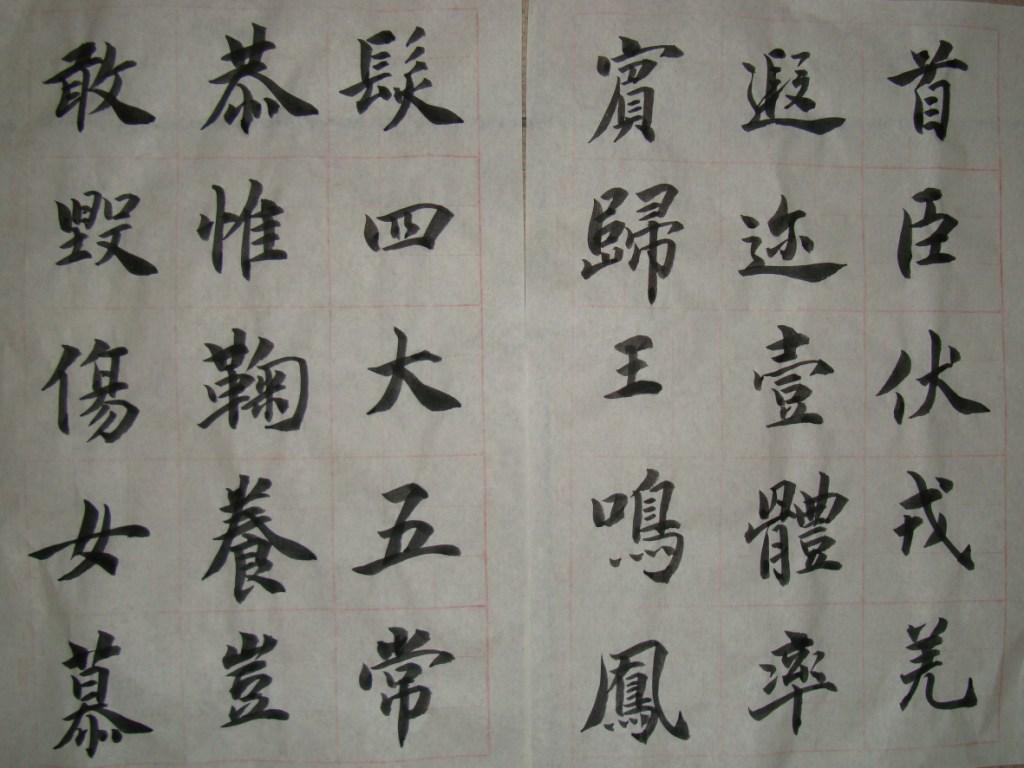 首臣伏戎羌
遐迩壹體率
賓歸王鳴鳳
髮四大五常
恭惟鞠養豈
敢毀傷女慕